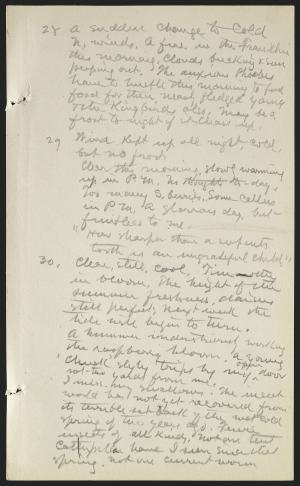 28 A sudden change to cold
N. winds. A fire in the Franklin
this morning, clouds breaking & sun
peeping out. The anxious Phoebes
have to hustle this morning to find
food for their near fledged young
& the Kingbirds also. May be a
frost to-night if it clears up.
29 Wind kept up all night, cold,
but no frost.
Clear this morning, slowly warming
up in P.M. No thoughts to-day,
too many S. Birds, some callers
in P.M. A glorious day, but
fruitless to me.
"How sharper than a serpent's
tooth is an ungrateful child"
30. Clear, still, cool, Timothy
in bloom. The height of the
summer freshness, daisies
still perfect. Next week the
tide will begin to turn.
A Hummer industriously working
the raspberry bloom. A young
"Chuck" slyly trips by my open door
not two yards from me.
I miss my swallows. The insect
world has not yet recovered from
its terrible set back of the wet cold
spring of two years ago. Fewer
insects of all kinds. Not one tent
caterpillar have I seen since that
spring. Not one currant worm